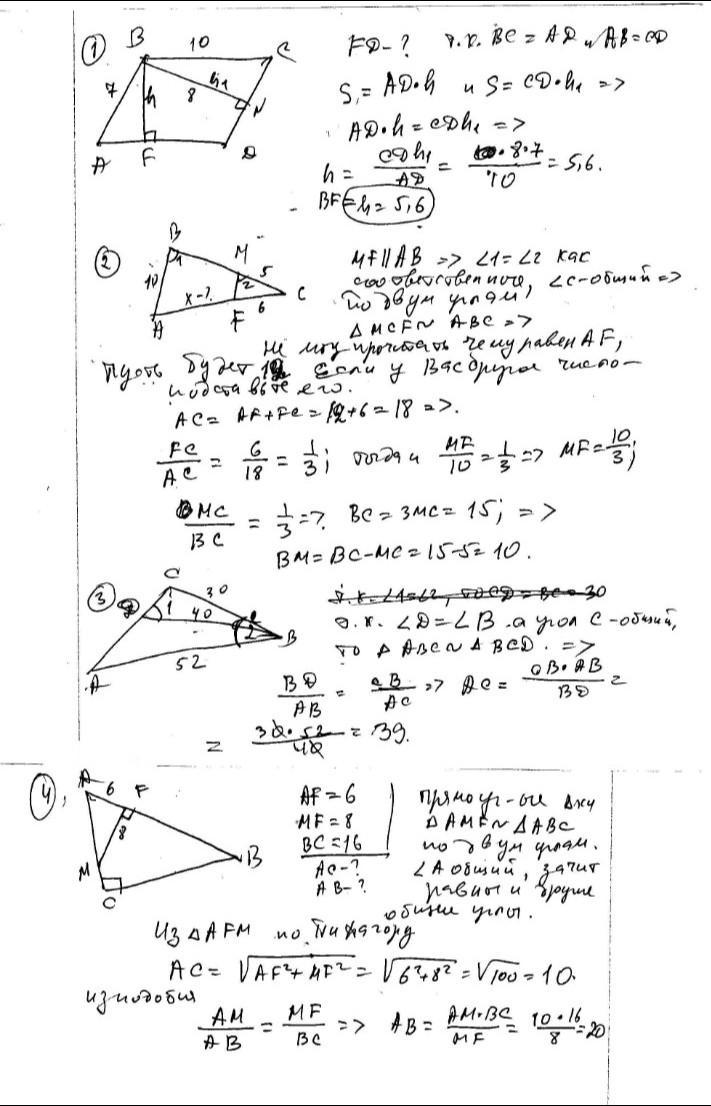 1
B 10 C
7 h 8 h₁ N
A F D
FD-? т.к. BC = AD и AB = CD
S = AD·h и S = CD·h₁ =>
AD·h = CDh₁ =>
h = CDh₁/AD = 8·7/10 = 5,6.
BF = h = 5,6
2
B M 5 C
10 1 2 x-? 6
A F
MF || AB => ∠1=∠2 как
соответственные, ∠C-общий =>
по двум углам,
△MCF ~ ABC =>
Не могу прочитать чему равен AF,
Пусть будет 12 Если у Вас другое число-
подставьте его.
AC = AF+FC = 12+6 = 18 =>.
FC/AC = 6/18 = 1/3; тогда и MF/10 = 1/3 => MF = 10/3;
MC/BC = 1/3 =>. BC = 3MC = 15; =>
BM = BC-MC = 15-5 = 10.
3
C 30
D 1 40 2 B
A 52
т.к. ∠1=∠2, то CD = BC = 30
т.к. ∠D = ∠B а угол C-общий,
то △ABC ~ △BCD. =>
BD/AB = CB/AC => AC = CB·AB/BD =
= 30·52/40 = 39.
4,
A 6 F
8 B
M
C
AF = 6
MF = 8
BC = 16
AC-?
AB-?
Прямоуг-ые △ки
△AMF ~ △ABC
по двум углам.
∠A общий, значит
равны и другие
общие углы.
Из △AFM по Пифагору
AC = √AF²+MF² = √6²+8² = √100 = 10.
из подобия
AM/AB = MF/BC => AB = AM·BC/MF = 10·16/8 = 20